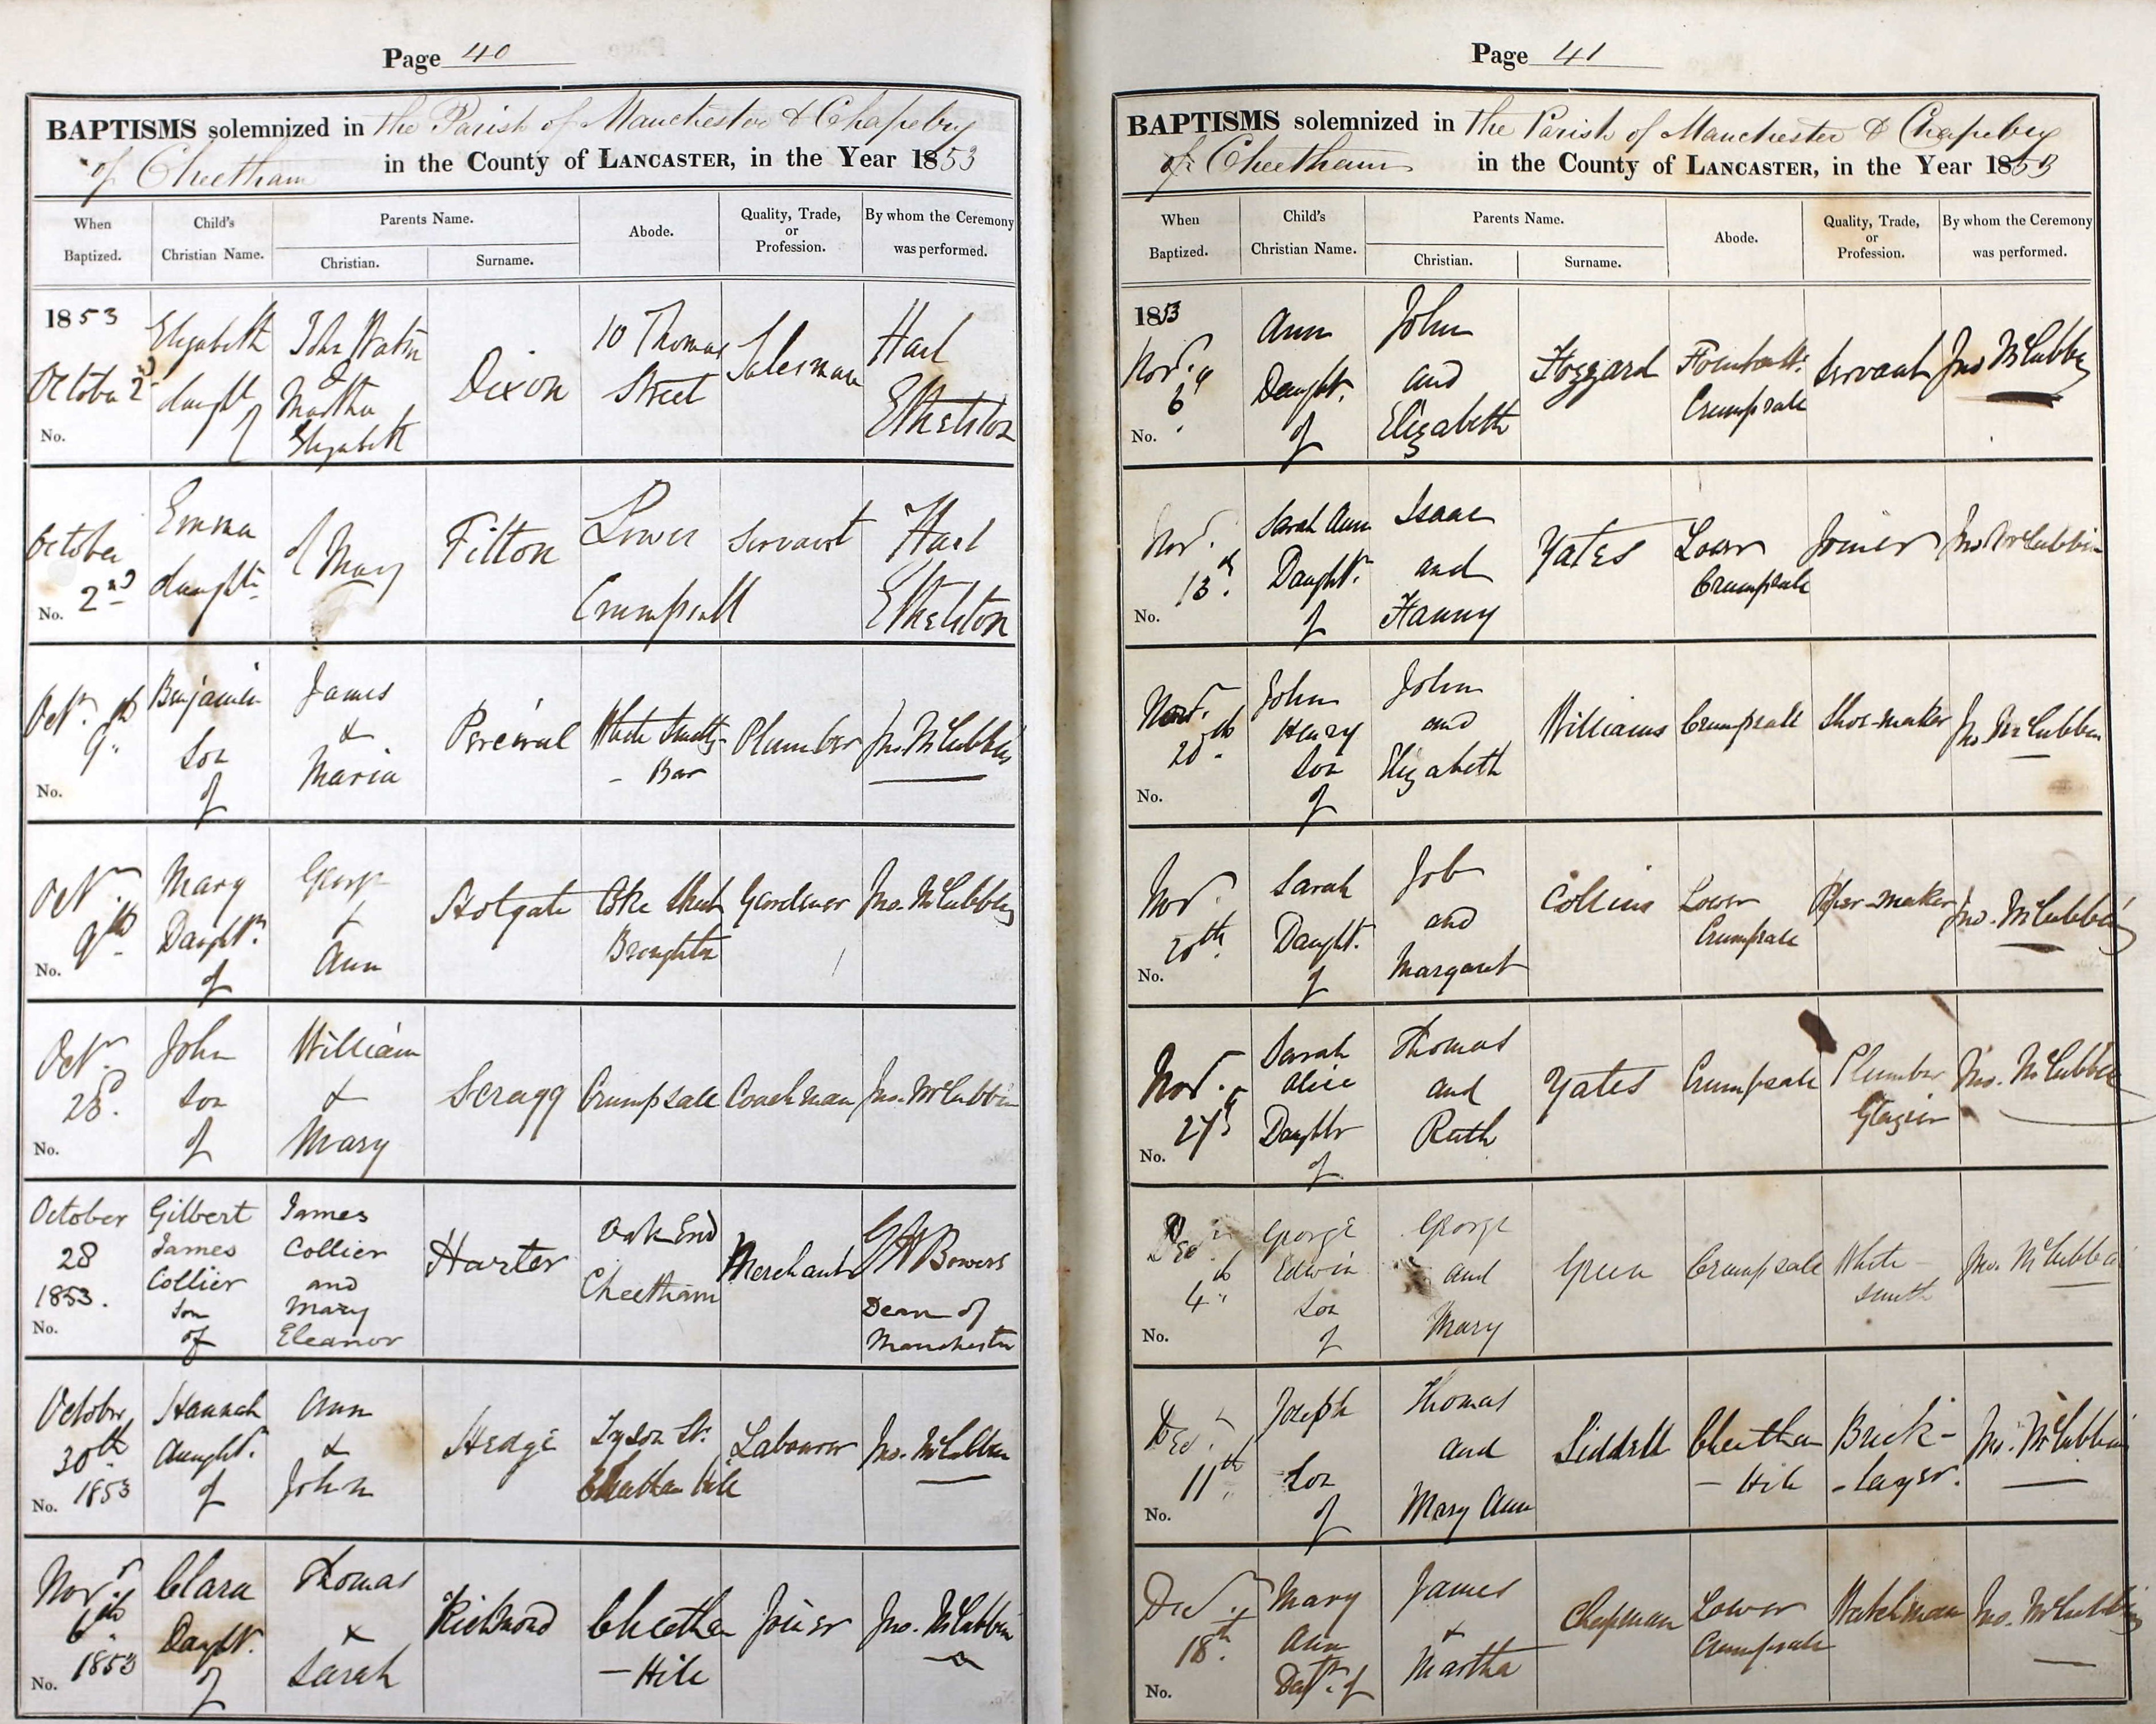 Page 40
BAPTISMS solemnized in the Parish of Manchester & Chapelry
of Cheetham in the County of LANCASTER, in the Year 1853
When Baptized. Child's Christian Name. Parents Name. Christian. Surname. Abode. Quality, Trade, or Profession. By whom the Ceremony was performed.
1853 Elizabeth John 10 Thomas Salesman
October 2nd daught & Dixon Street Ethelston
No. of Martha
Elizabeth
October Emma of Mary Fitton Lower servant
2nd daughtr Crumpsall Ethelston
No.
Octr. Benjamin James Percival White Smithy Plumber Jno. McCubbin
9th Son & - Bar
No. of Maria
Octr. Mary George Holgate Street Gardener Jno. McCubbin
9th Daughtr. & Broughton
No. of Ann
Octr. John William Scragg Crumpsall Coachman Jno. McCubbin
28. Son &
No. of Mary
October Gilbert James Harter Oak End Merchant GH Bowers
28 James Collier Cheetham Dean of
1853. Collier and Manchester
No. son Mary
of Eleanor
October Hannah Ann Hedge Tyson St. Labourer Jno. McCubbin
30th daught. & Cheetham Hill
No. 1853 of John
Novr. Clara Thomas Richmond Cheetham Joiner Jno. McCubbin
6th Daughtr. & - Hill
No. 1853 of Sarah
Page 41
BAPTISMS solemnized in the Parish of Manchester & Chapelry
of Cheetham in the County of LANCASTER, in the Year 1853
When Baptized. Child's Christian Name. Parents Name. Christian. Surname. Abode. Quality, Trade, or Profession. By whom the Ceremony was performed.
1853 Ann John Foggard Servant Jno McCubbin
Novr. Daught. and Crumpsall
6th of Elizabeth
No.
Novr. Sarah Ann Isaac Yates Lower Joiner Jno McCubbin
13th Daughtr. and Crumpsall
No. of Fanny
Novr. John John Williams Crumpsall Shoe-maker Jno McCubbin
20th Henry and
No. Son Elizabeth
of
Novr. Sarah Job Collins Lower Paper-maker Jno. McCubbin
20th Daught. and Crumpsall
No. of Margaret
Novr. Sarah Thomas Yates Crumpsall Plumber Jno. McCubbin
27th Alice and Glazier
No. Daughtr Ruth
of
Decr. George George Green Crumpsall White- Jno. McCubbin
4th Edwin and smith
No. Son Mary
of
Decr. Joseph Thomas Liddell Cheetham Brick- Jno. McCubbin
11th Son and - Hill -layer.
No. of Mary Ann
Decr. Mary James Chapman Lower Watchman Jno. McCubbin
18th. Ann & Crumpsall
No. Datr. of Martha